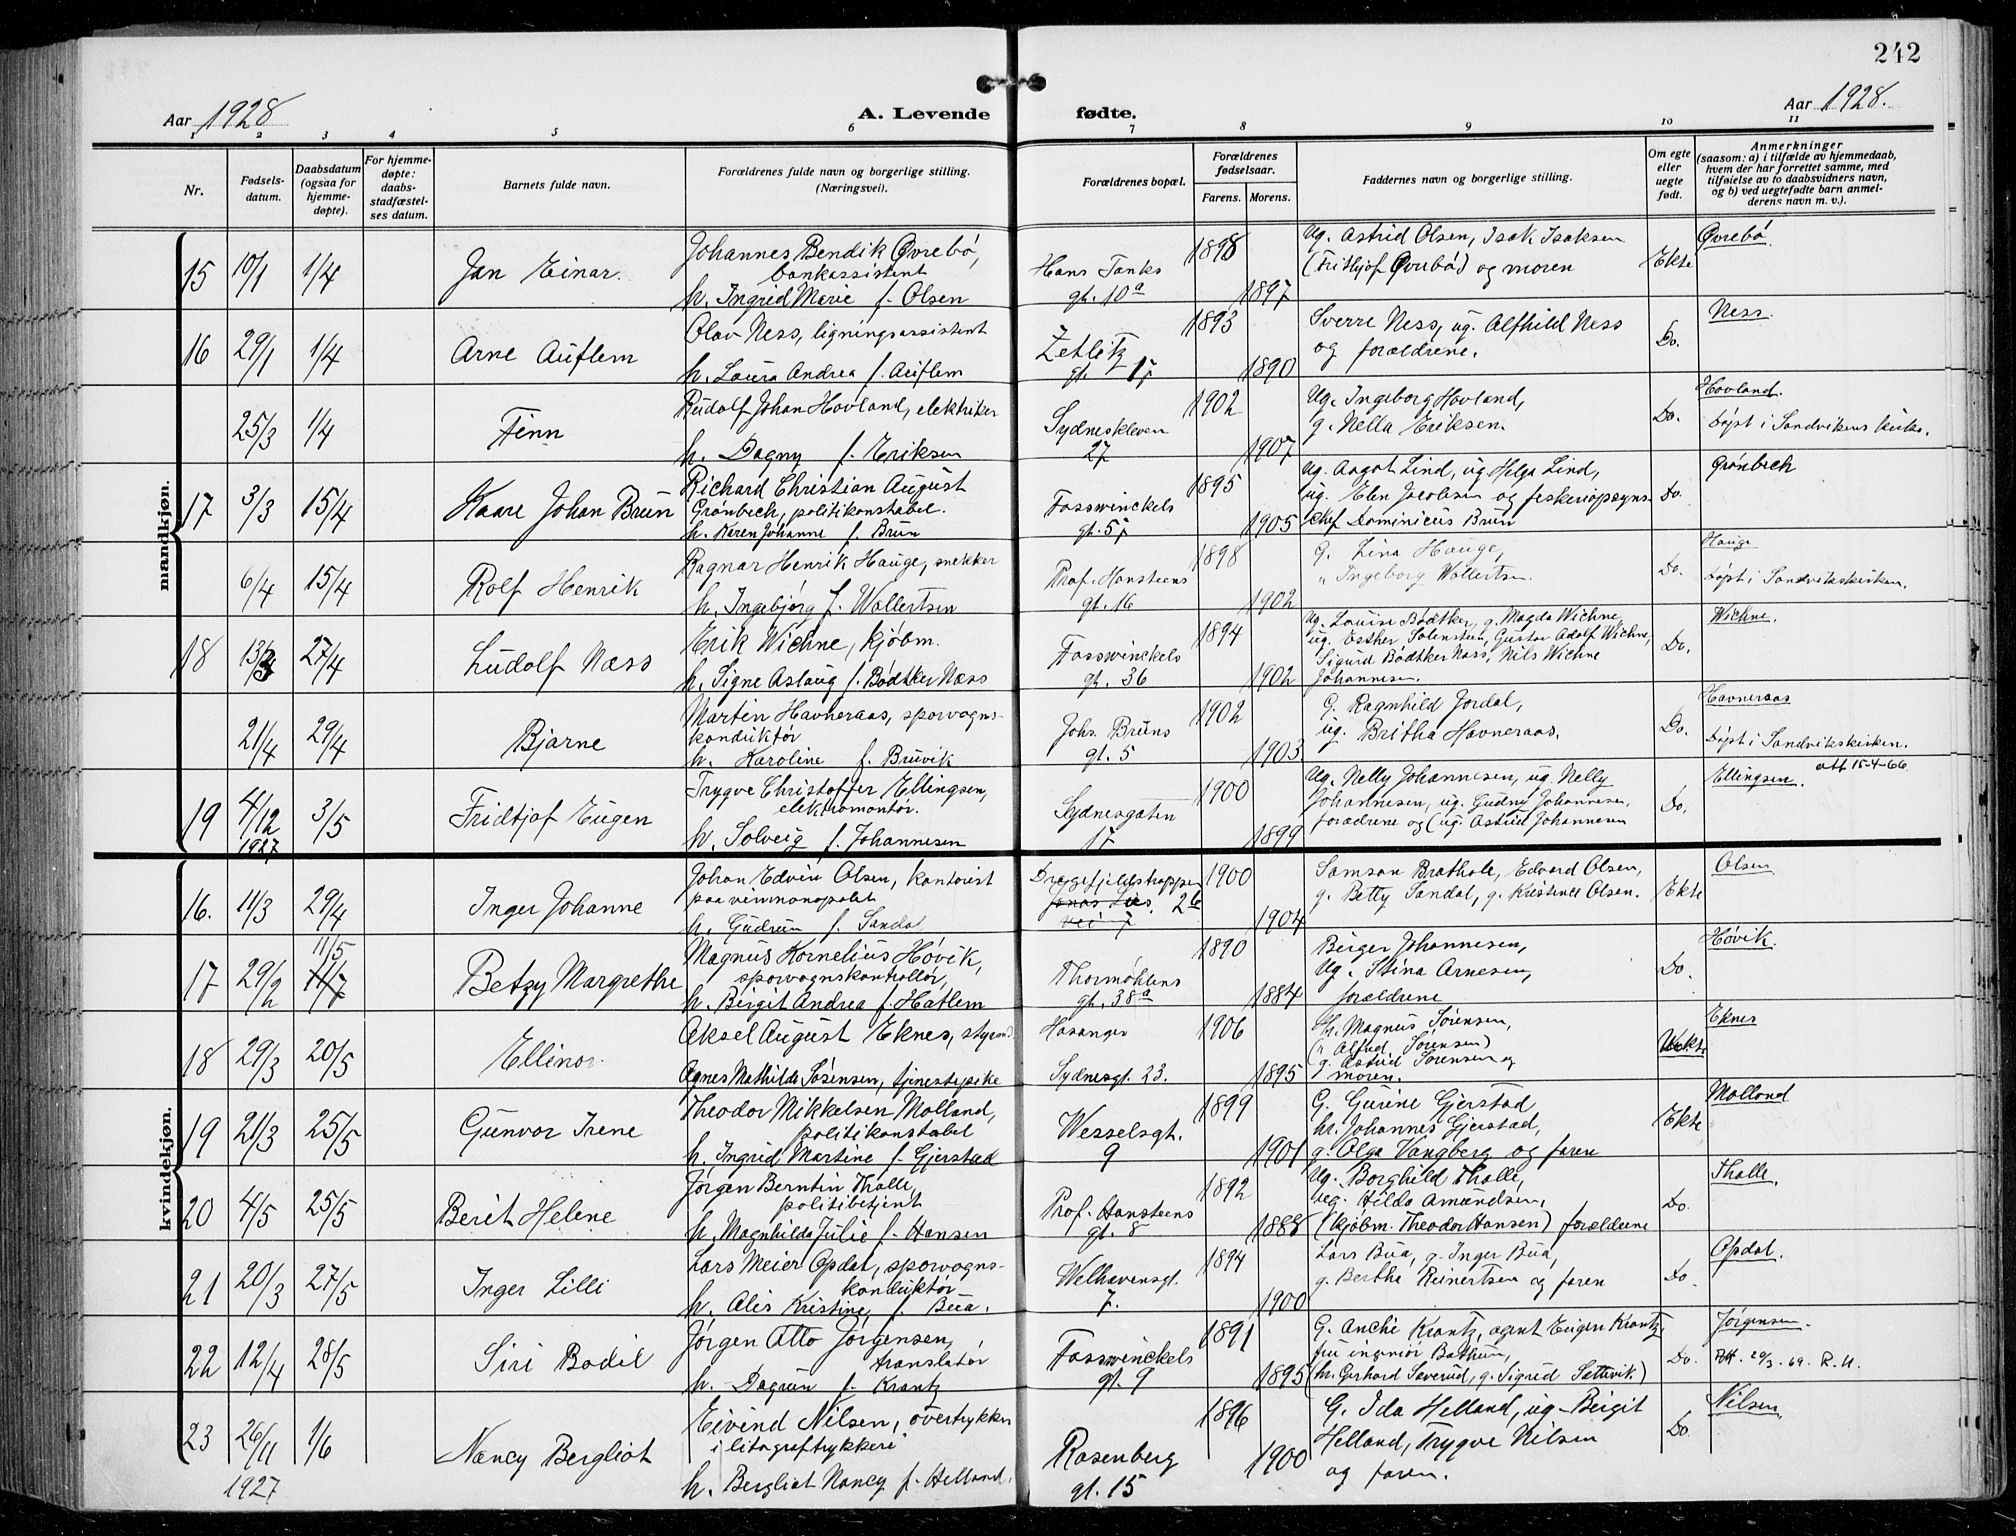 242
Aar 1928
A. Levende fødte.
Aar 1928.
1 2 3 4 5 6 7 8 9 10 11
Nr.
Fødsels-
datum.
Daabsdatum
(ogsaa for
hjemme-
døpte).
For hjemme-
døpte:
daabs-
stadfæstel-
ses datum.
Barnets fulde navn.
Forældrenes fulde navn og borgerlige stilling.
(Næringsvei).
Forældrenes bopæl.
Forældrenes
fødselsaar.
Farens. Morens.
Faddernes navn og borgerlige stilling.
Om egte
eller
uegte
født.
Anmerkninger
(saasom: a) i tilfælde av hjemmedaab,
hvem der har forrettet samme, med
tilføielse av to daabsvidners navn,
og b) ved uegtefødte barn anmel-
derens navn m. v.).
mandkjøn.
15 10/1 1/4 Jan Einar.
Johannes Bendik Øvrebö,
bankassistent
h. Ingrid Marie f. Olsen
Hans Tanks
gt. 10a
1898
1897
Ug. Astrid Olsen, Isak Isaksen
(Fritjof Øvrebö) og moren
Ekte
Øvrebö
16 29/1 1/4 Arne Auflem
Olav Ness, ligningsassistent
h. Laura Andrea f. Auflem
Zetlitz
gt. 17
1893
1890
Sverre Ness, ug. Alfhild Ness
og forældrene.
Do.
Ness.
25/3 1/4 Finn
Rudolf Johan Hovland, elektriker
h. Dagny f. Eriksen
Sydneskleven
27
1902
1907
Ug. Ingeborg Hovland,
g. Nella Eriksen.
Do.
Hovland.
Döpt i Sandvikens kirke.
17 3/3 15/4 Kaare Johan Brun
Richard Christian August
Grønbech, politikonstabel.
h. Karen Johanne f. Brun
Fosswinckels
gt. 57
1895
1905
Ug. Aagot Lind, ug Helga Lind,
ug. Elen Jacobsen og fiskeriopsyns-
chef Dominicus Brun
Do.
Grønbech
6/4 15/4 Rolf Henrik
Ragnar Henrik Hauge, snekker
h. Ingebjørg f. Wollertsen
Prof. Hansteens
gt. 16
1898
1902
G. Lina Hauge,
" Ingeborg Wollertsen.
Do.
Hauge
Döpt i Sandvikskirken.
18 13/3 27/4 Ludolf Næss
Erik Wichne, kjöbm.
h. Signe Aslaug f. Bødtker Næss
Fosswinckels
gt. 36
1894
1902
Ug. Louise Bødtker, g. Magda Wichne,
ug. Esther Solensten, Gustav Adolf Wichne,
Sigurd Bødtker Næss, Nils Wichne
Johannesen.
Do.
Wichne.
21/4 29/4 Bjarne
Martin Havneraas, sporvogns-
konduktör
h. Karoline f. Bruvik
Johs. Bruns
gt. 5
1902
1903
G. Ragnhild Jordal,
ug. Britha Havneraas.
Do.
Havneraas
Döpt i Sandvikskirken.
19 4/12 1927 3/5 Fridtjof Eugen
Trygve Christoffer Ellingsen,
elektromontör.
h. Solveig f. Johannesen
Sydnesgaten
17
1900
1899
Ug. Nelly Johannesen, ug. Nelly
Johannesen, ug. Gudny Johannesen.
forædrene og (ug. Astrid Johannesen
Do.
att 15-4-66
Ellingsen.
kvindekjøn.
16. 11/3 29/4 Inger Johanne
Johan Edvin Olsen, kontorist
paa vinmonopolet
h. Gudrun f. Sandal
Dræggefjeldstrappen
Jonas Lies 26
vei 7
1900
1904
Samson Brathole, Edvard Olsen,
g. Betty Sandal, g. Kristence Olsen.
Ekte
Olsen
17 29/2 11/5 11/7 Betzy Margrethe
Magnus Kornelius Hövik,
sporvognskontrollör,
h. Birgit Andrea f. Hatlem
Thormöhlens
gt. 38a
1890
1884
Birger Johannesen,
Ug. Stina Arnesen,
forældrene
Do.
Hövik.
18 29/3 20/5 Ellinor
Aksel August Eknes, styrm.
Agnes Mathilde Sörensen, tjenestepike
Hosanger
Sydnesgt. 23.
1906
1895
Hr. Magnus Sörensen,
(" Alfred Sörensen)
g. Astrid Sörensen og
moren.
Uekte
Eknes
19 21/3 25/5 Gunvor Irene
Theodor Mikkelsen Molland,
politikonstabel
h. Ingrid Martine f. Gjerstad
Wesselsgt.
9
1899
1901
G. Gurine Gjerstad
hr. Johannes Gjerstad,
g. Olga Vangberg og faren
Ekte
Molland
20 4/5 25/5 Berit Helene
Jörgen Berntin Thalle,
politibetjent
h. Magnhilda Julie f. Hansen
Prof. Hansteens
gt. 8
1892
1888
Ug. Borghild Thalle,
ug. Hilda Amundsen,
(kjöbm. Theodor Hansen) forældrene
Do.
Thalle.
21 20/3 27/5 Inger Lilli
Lars Meier Opdal, sporvogns-
konduktör
h. Alis Kristine, f. Bua.
Welhavensgt.
7.
1894
1900
Lars Bua, g. Inger Bua,
g. Bertha Reinertsen og faren
Do.
Opdal.
22 12/4 28/5 Siri Bodil
Jörgen Otto Jörgensen,
translatör
h. Dagrun f. Krantz
Fosswinckels
gt. 9
1891
1895
G. Anchi Krantz, agent Eugen Krantz,
fru ingeniör Bothun,
(hr. Gerhard Sæverud, g. Sigrid Settevik)
Do.
Jørgensen.
Att. 20/3.69. R.U.
23 26/11 1927 1/6 Nancy Bergliot
Eivind Nilsen, overtrykker
i litograftrykkeri
h. Bergliot Nancy f. Helland.
Rosenberg
gt. 15
1896
1900
G. Ida Helland, ug. Birgit
Helland, Trygve Nilsen
og faren.
Do.
Nilsen